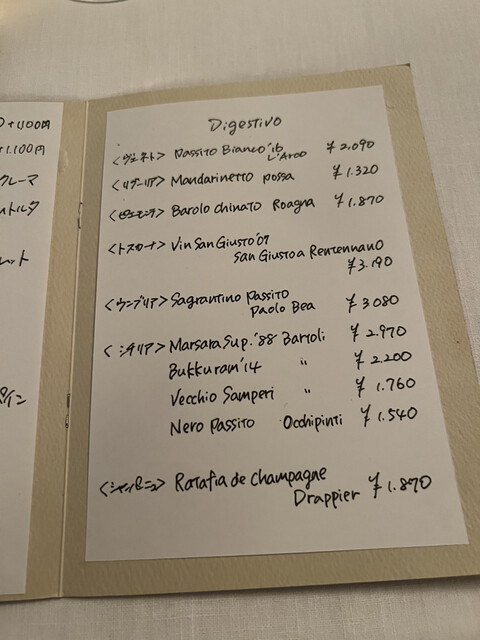 +1,100円
+1.100円
クレーマ
Digestivo
<ヴェネト> Passito Bianco '16 ¥2.090
L'Arco
<リグーリア> Mandarinetto possa ¥1.320
<ピエモンテ> Barolo chinato Roagna ¥1.870
<トスカーナ> Vin San Giusto '07
San Giusto a Rentennano
¥3.190
<ウンブリア> Sagrantino Passito
Paolo Bea ¥3080
<シチリア> Marsara Sup. '88 Bartoli ¥2.970
Bukkuram '14 〃 ¥2.200
Vecchio Samperi 〃 ¥1.760
Nero Passito Occhipinti ¥1.540
<シャンパーニュ> Ratafia de Champagne
Drappier ¥1.870